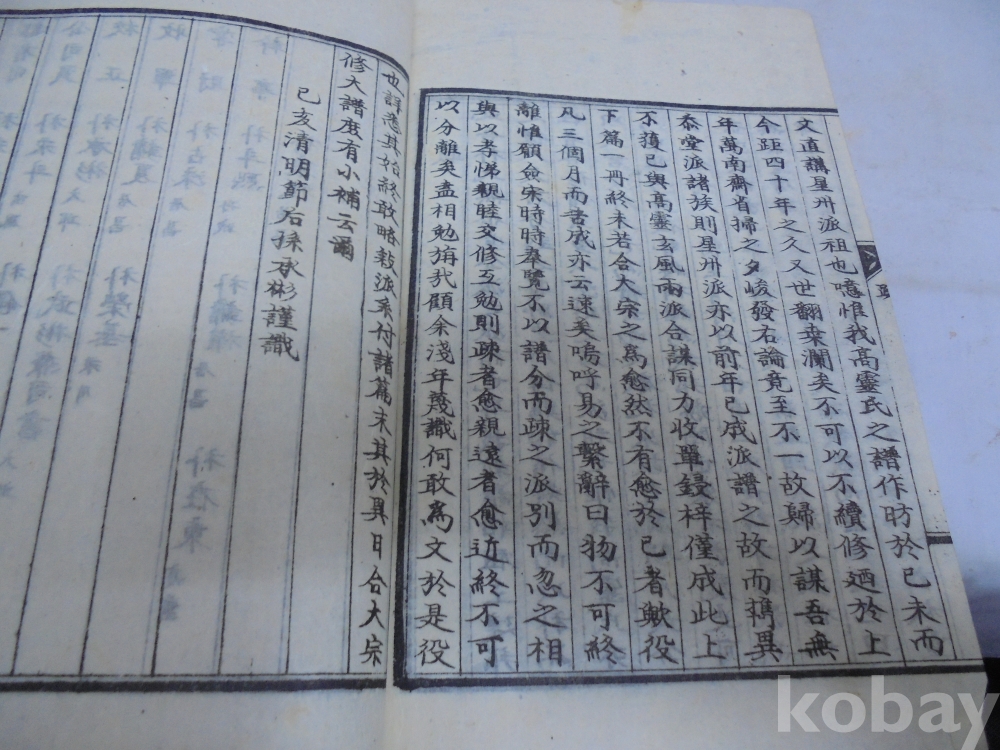 文直講星州派祖也噫惟我高靈氏之譜作昉於己未而
今距四十年之久又世翻桑瀾矣不可以不續修廼於上
年萬南齋省掃之夕峻發右論竟至不一故歸以謀吾無
忝堂派諸族則星州派亦以前年已成派譜之故而携異
不獲已與高靈玄風兩派合謀同力收單鋟梓僅成此上
下篇一冊終未若合大宗之為愈然不有愈於已者歟役
凡三個月而告成亦云速矣嗚呼易之繫辭曰物不可終
離惟願僉宗時時奉覽不以譜分而疎之派別而忽之相
與以孝悌親睦交修互勉則疎者愈親遠者愈近終不可
以分離矣盍相勉旃哉顧余淺年蔑識何敢為文於是役
也詳悉其始終敢略敍派系付諸篇末其於異日合大宗
修大譜庶有小補云爾
己亥清明節后孫承彬謹識
kobay